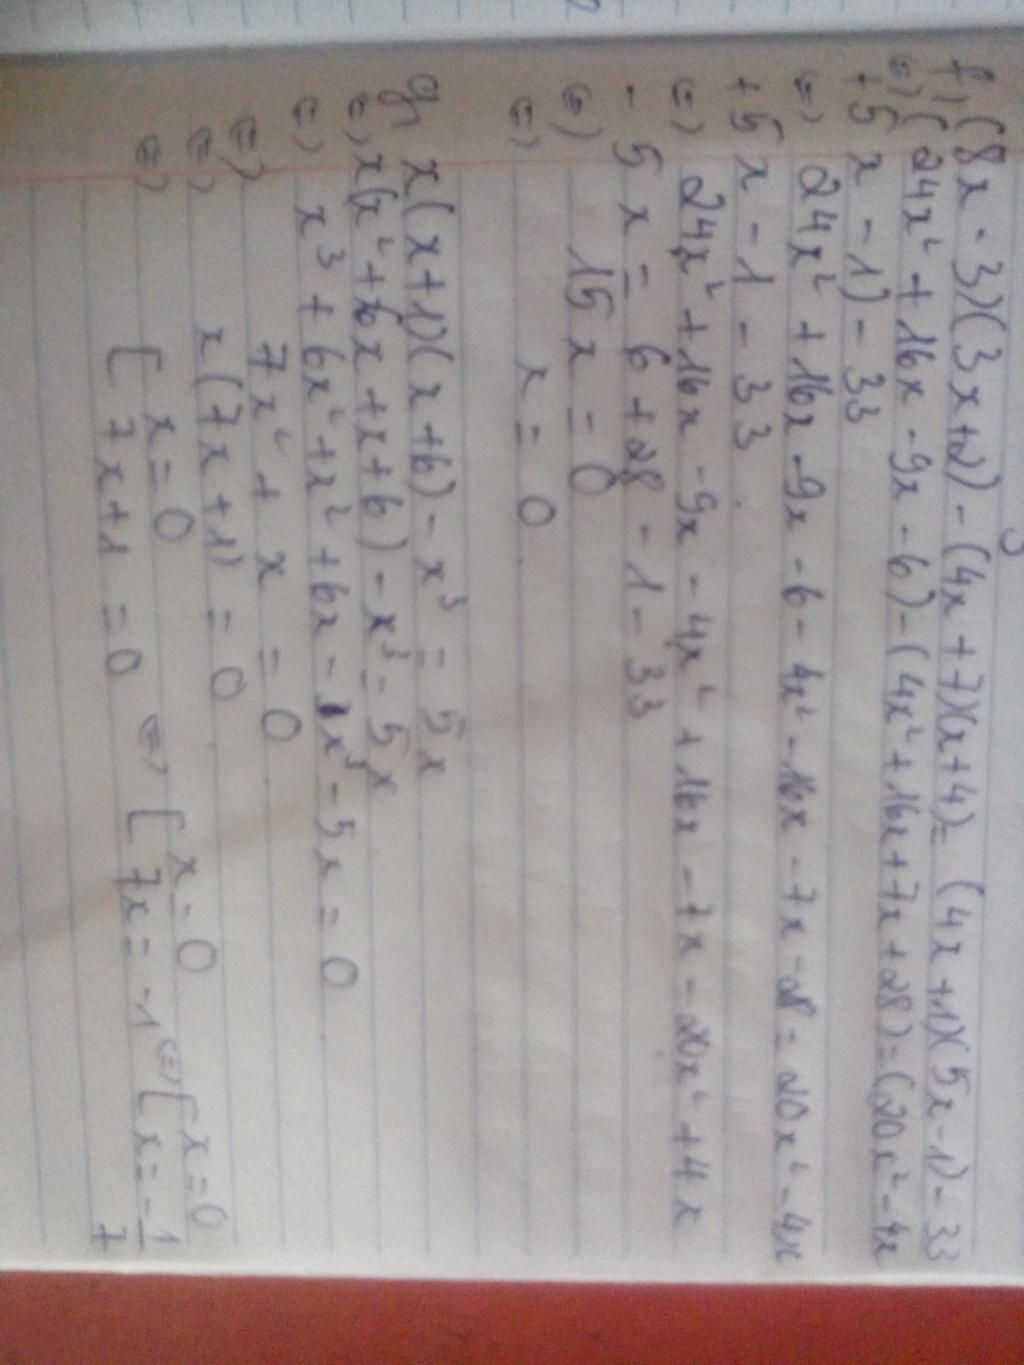 f, (8x - 3)(3x+2) - (4x + 7)(x+4) = (4x + 1)(5x - 1) - 33
<=> (24x² + 16x - 9x - 6) - (4x² + 16x + 7x + 28) = (20x² - 4x
+ 5x - 1) - 33
<=> 24x² + 16x - 9x - 6 - 4x² - 16x - 7x - 28 = 20x² - 4x
+ 5x - 1 - 33
<=> 24x² + 16x - 9x - 4x² + 16x - 7x - 20x² + 4x
- 5x = 6 + 28 - 1 - 33
<=> 15x = 0
<=> x = 0
g, x(x+1)(x+6) - x³ = 5x
<=> x(x² + 6x + x + 6) - x³ = 5x
<=> x³ + 6x² + x² + 6x - x³ - 5x = 0
<=> 7x² + x = 0
<=> x(7x + 1) = 0
<=> [ x = 0 <=> [ x = 0 <=> [ x = 0
7x + 1 = 0 7x = -1 x = -1/7